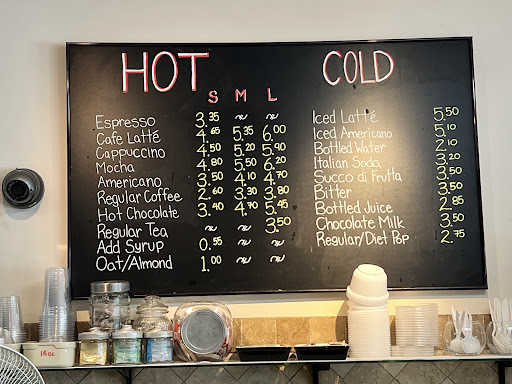 HOT
S M L
Espresso 3.35 ~ ~
Cafe Latté 4.65 5.35 6.00
Cappuccino 4.50 5.20 5.90
Mocha 4.80 5.50 6.20
Americano 3.50 4.10 4.70
Regular Coffee 2.60 3.30 3.80
Hot Chocolate 3.40 4.70 5.45
Regular Tea ~ ~ 3.50
Add Syrup 0.55 ~ ~
Oat/Almond 1.00 ~ ~
COLD
Iced Latté 5.50
Iced Americano 5.10
Bottled Water 2.10
Italian Soda 3.20
Succo di Frutta 3.50
Bitter 3.50
Bottled Juice 2.85
Chocolate Milk 3.50
Regular/Diet Pop 2.75
16oz